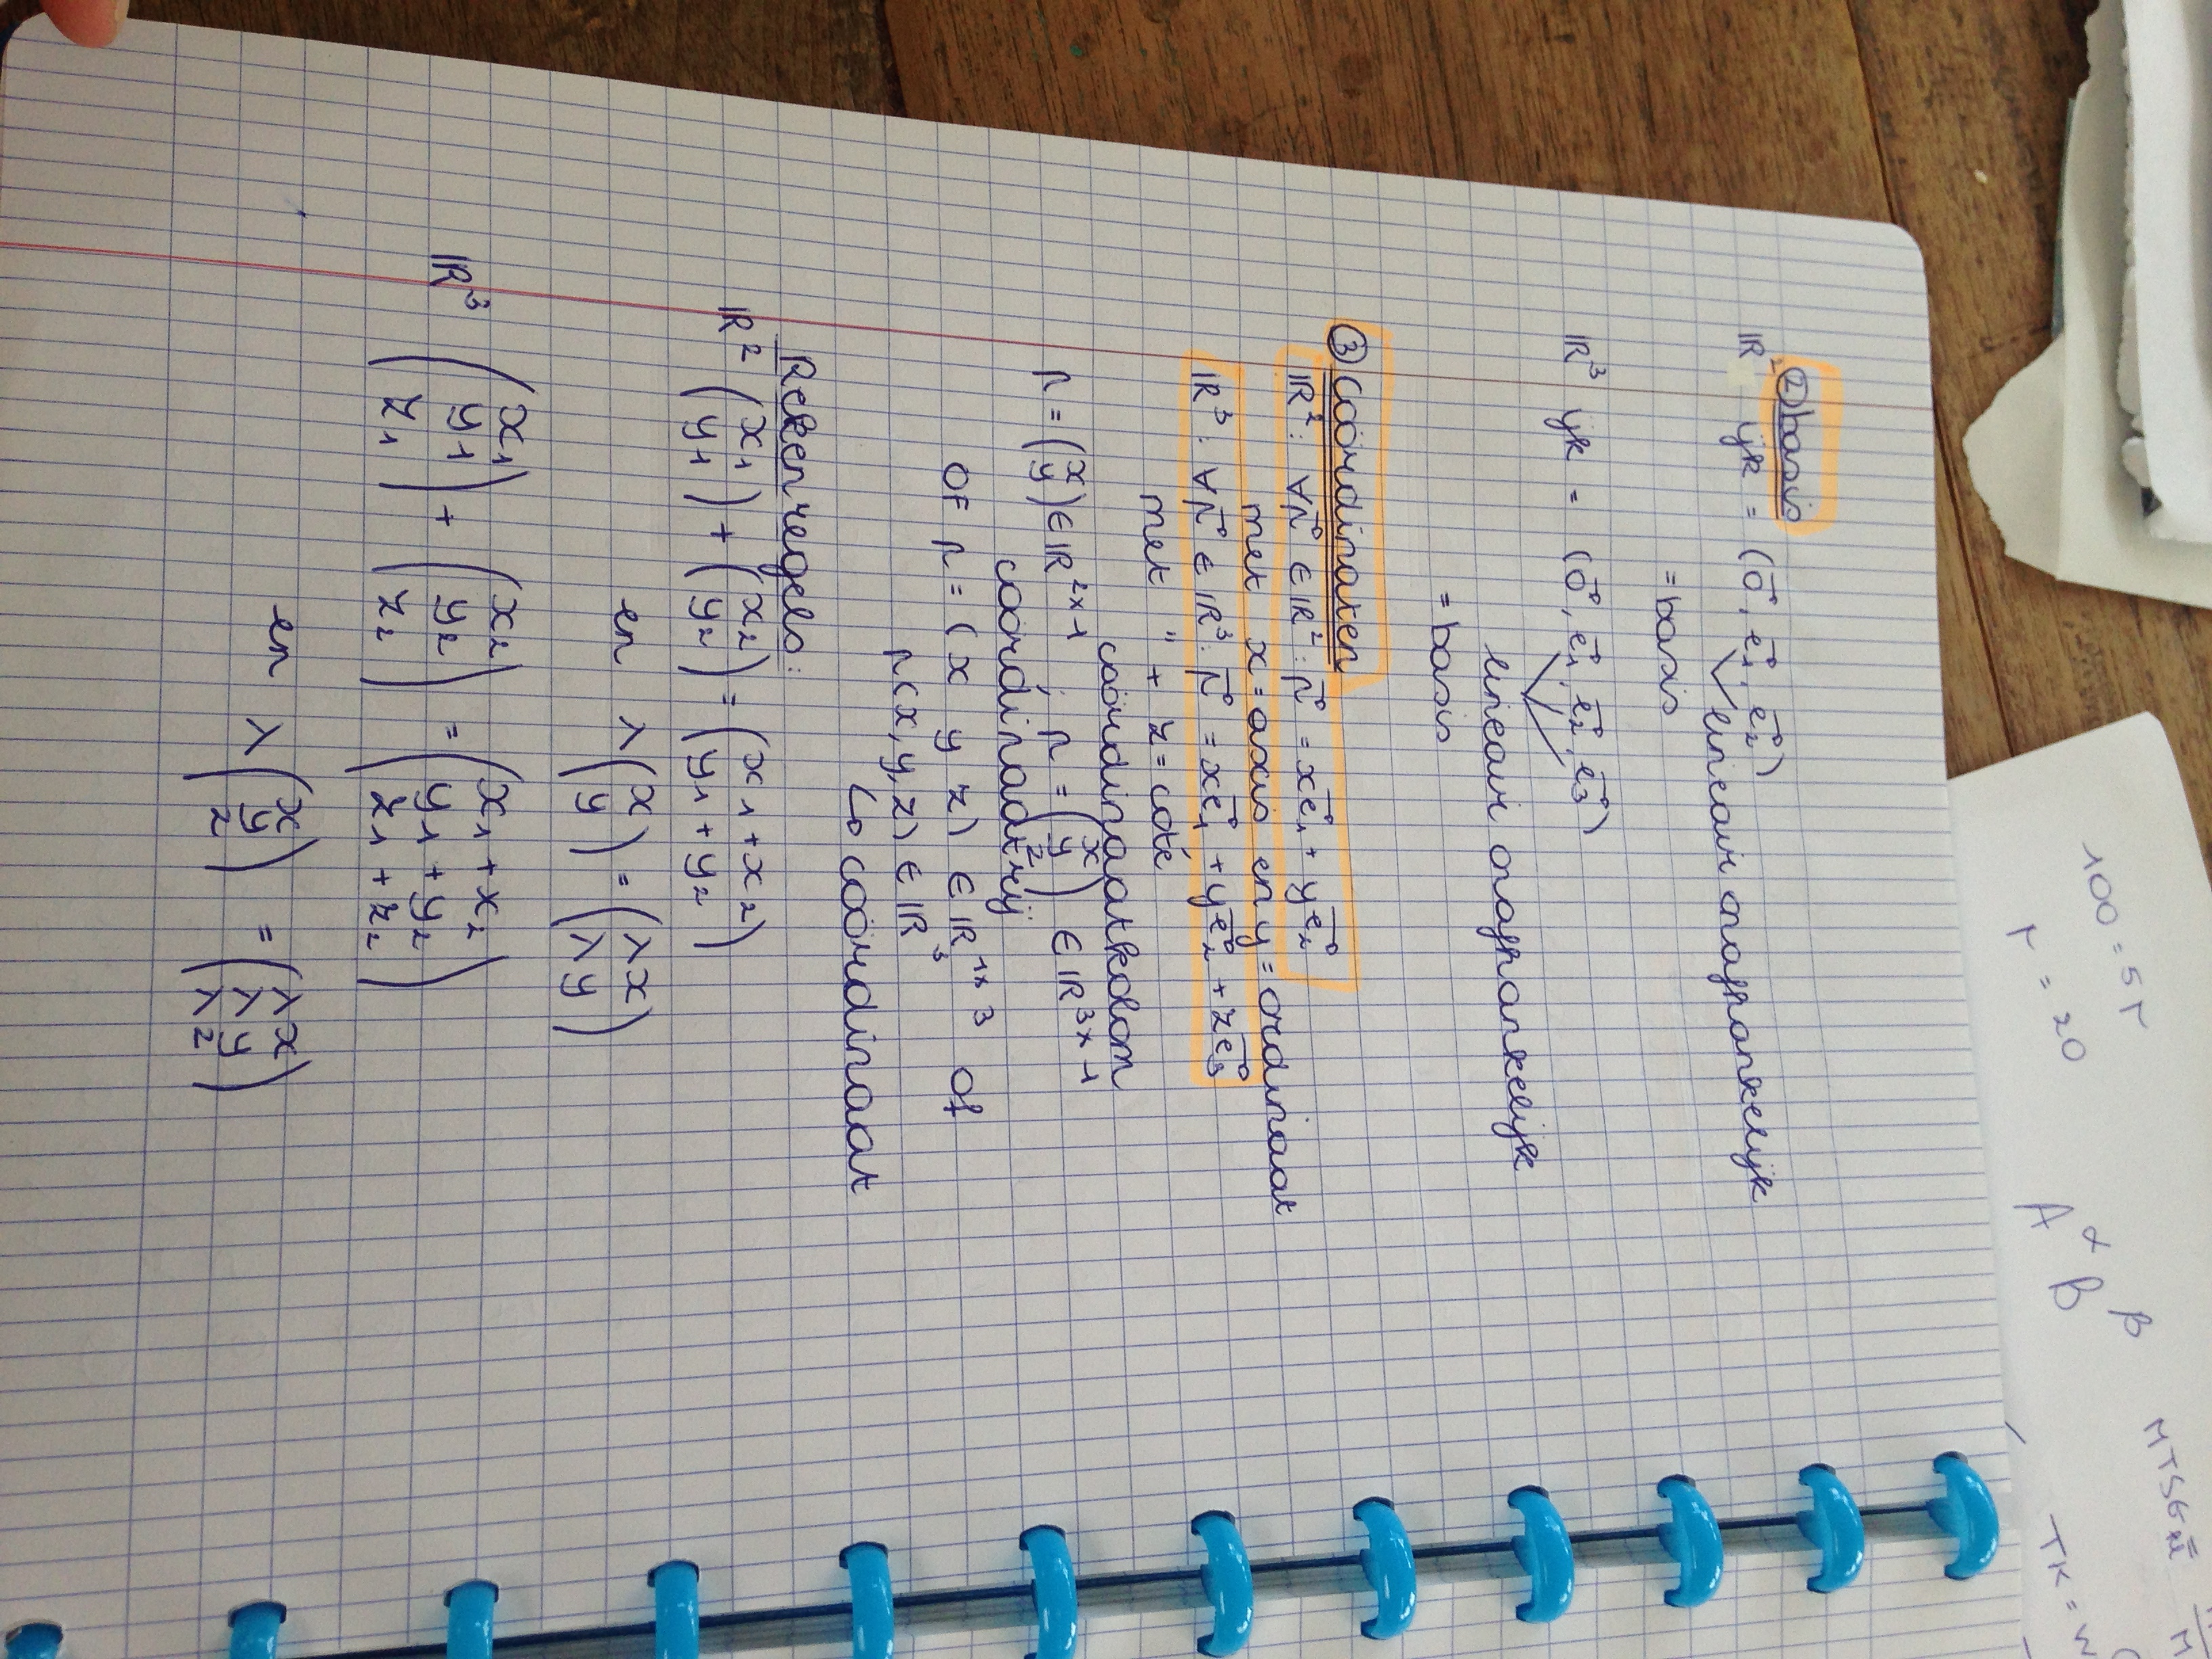 ② basis
ℝ² ijk = (o⃗, e⃗₁, e⃗₂)
lineair onafhankelijk
= basis
ℝ³ ijk = (o⃗, e⃗₁, e⃗₂, e⃗₃)
lineair onafhankelijk
= basis
③ coördinaten
ℝ²: ∀r⃗ ∈ ℝ²: r⃗ = xe⃗₁ + ye⃗₂
met x = axis en y = ordinaat
ℝ³: ∀r⃗ ∈ ℝ³: r⃗ = xe⃗₁ + ye⃗₂ + ze⃗₃
met " + z = coté
coördinaatkolom
r = (x y) ∈ ℝ²ˣ¹ r = (x y z) ∈ ℝ³ˣ¹
coördinaatrij
OF r = (x y z) ∈ ℝ¹ˣ³ OF
r(x, y, z) ∈ ℝ³
↳ coördinaat
Rekenregels:
ℝ² (x₁ y₁) + (x₂ y₂) = (x₁ + x₂ y₁ + y₂)
en λ (x y) = (λx λy)
ℝ³ (x₁ y₁ z₁) + (x₂ y₂ z₂) = (x₁ + x₂ y₁ + y₂ z₁ + z₂)
en λ (x y z) = (λx λy λz)
100 = 5r
r = 20
A α B β
TK = W